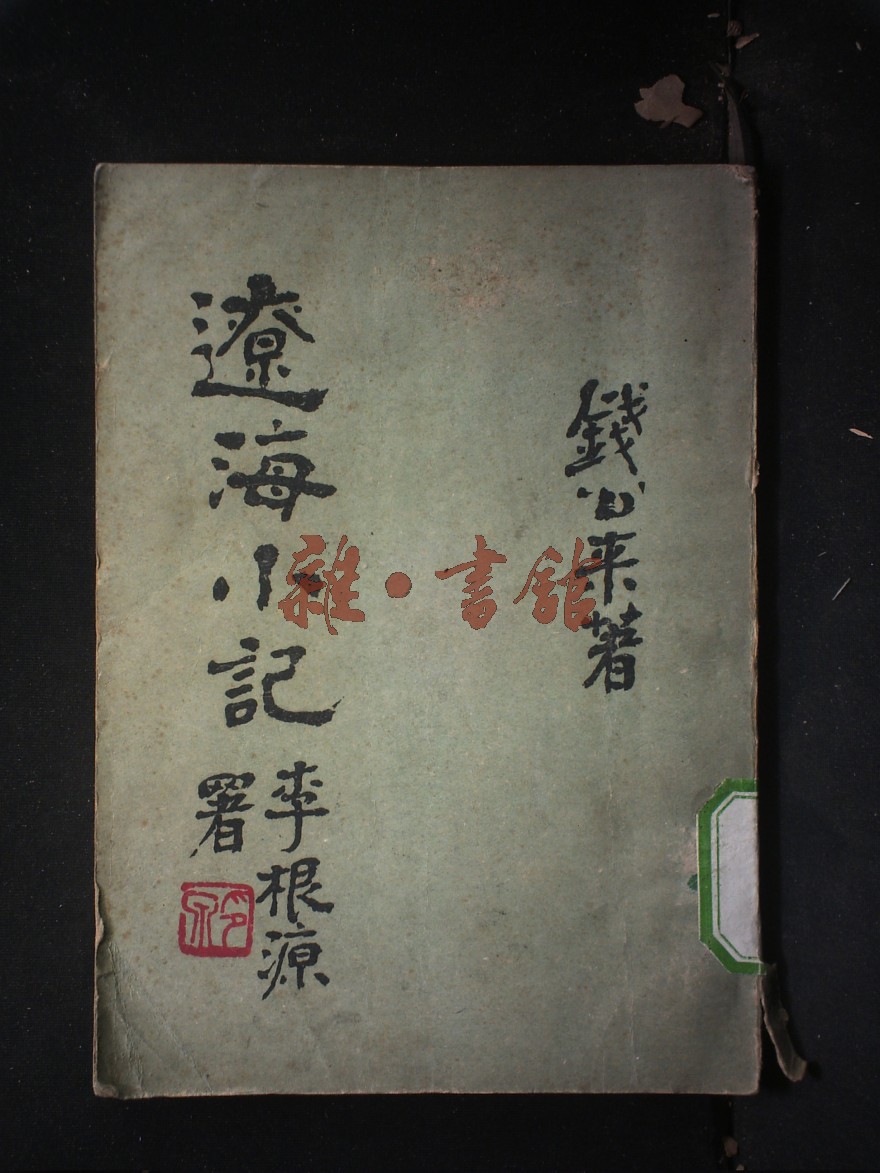 錢公来著
遼海小記
李根源
署
雜·書館